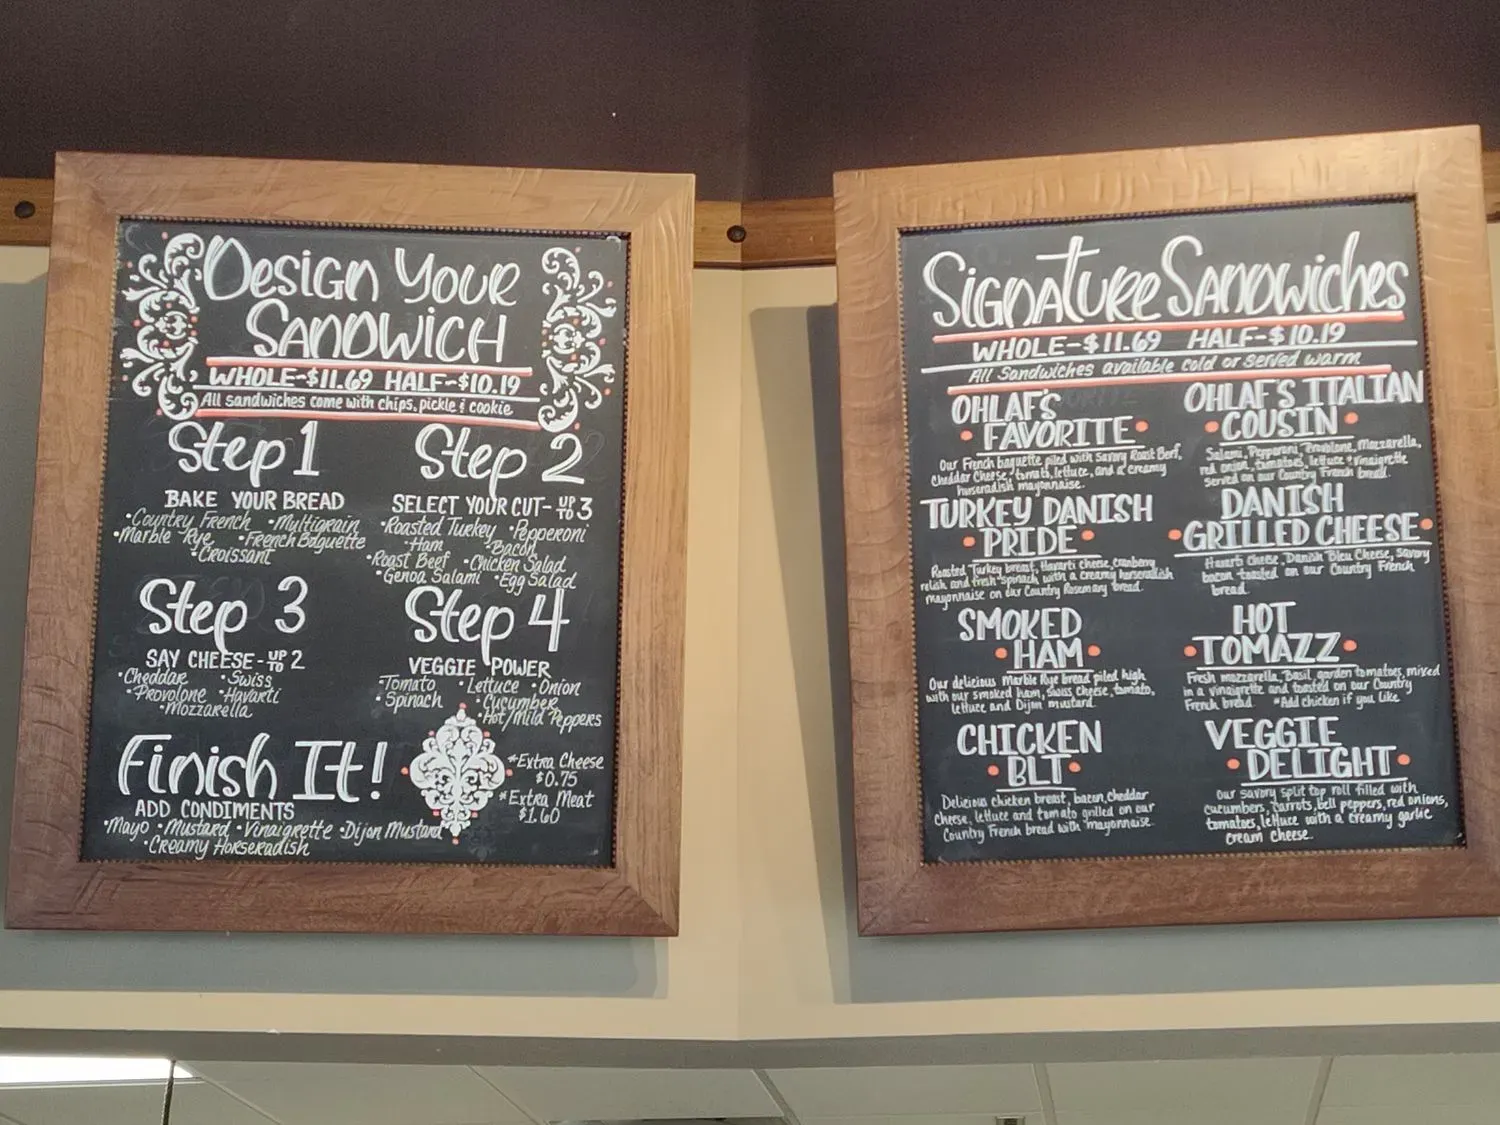 Design Your
Sandwich
WHOLE-$11.69 HALF-$10.19
All sandwiches come with chips, pickle & cookie
Step 1
BAKE YOUR BREAD
•Country French •Multigrain
•Marble Rye •French Baguette
•Croissant
Step 2
SELECT YOUR CUT- UP TO 3
•Roasted Turkey •Pepperoni
•Ham •Bacon
•Roast Beef •Chicken Salad
•Genoa Salami •Egg Salad
Step 3
SAY CHEESE- UP TO 2
•Cheddar •Swiss
•Provolone •Havarti
•Mozzarella
Step 4
VEGGIE POWER
•Tomato •Lettuce •Onion
•Spinach •Cucumber
•Hot/Mild Peppers
Finish It!
ADD CONDIMENTS
•Mayo •Mustard •Vinaigrette •Dijon Mustard
•Creamy Horseradish
*Extra Cheese
$0.75
*Extra Meat
$1.60
Signature Sandwiches
WHOLE-$11.69 HALF-$10.19
All Sandwiches available cold or served warm
OHLAF'S
•FAVORITE•
Our French baguette piled with Savory Roast Beef,
Cheddar Cheese, tomato, lettuce, and a creamy
horseradish mayonnaise.
TURKEY DANISH
•PRIDE•
Roasted Turkey breast, Havarti cheese, cranberry
relish and fresh spinach with a creamy horseradish
mayonnaise on our Country Rosemary bread.
SMOKED
•HAM•
Our delicious Marble Rye bread piled high
with our smoked ham, swiss cheese, tomato,
lettuce and Dijon mustard.
CHICKEN
•BLT•
Delicious chicken breast, bacon, cheddar
cheese, lettuce and tomato grilled on our
Country French bread with mayonnaise.
OHLAF'S ITALIAN
•COUSIN•
Salami, Pepperoni, Provolone, Mozzarella,
red onion, tomatoes, lettuce & vinaigrette
Served on our Country French bread.
DANISH
•GRILLED CHEESE•
Havarti Cheese, Danish Bleu Cheese, savory
bacon toasted on our Country French
bread.
HOT
•TOMAZZ•
Fresh mozzarella, Basil, garden tomatoes, mixed
in a vinaigrette and toasted on our Country
French bread *Add chicken if you like
VEGGIE
•DELIGHT•
Our savory split top roll filled with
cucumbers, carrots, bell peppers, red onions,
tomatoes, lettuce with a creamy garlic
cream cheese.